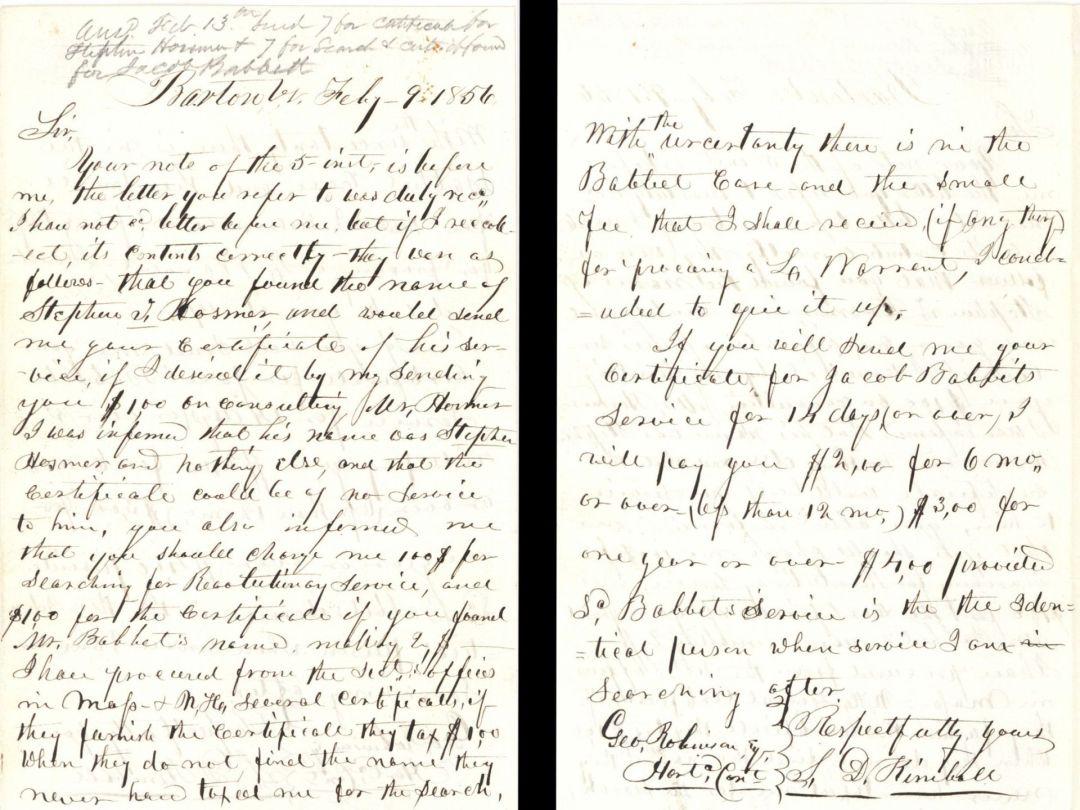 Ansd. Feb. 13th Send 7 for certificate for
Stephen Hosmer & 7 for Search & certif found
for Jacob Babbett
Barton Vt. Feby - 9. 1856
Sir,
Your note of the 5 inst, is before
me, the letter you refer to was duly recd,
I have not sd. letter before me, but if I recol-
-ect, its contents correctly - they were as
follows - that you found the name of
Stephen T. Hosmer, and would send
me your Certificate of his ser-
-vice, if I desired it by my sending
you $1,00 on consulting Mr, Hosmer
I was informed that his name was Stephen
Hosmer, and nothing else, and that the
Certificate could be of no service
to him, you also informed me
that you should charge me 100$ for
searching for Revolutinary service, and
$1,00 for the Certificate if you found
Mr, Babbet's name, making 2$
I have procured from the Sect,s offices
in Mass - & N Ha, several certificats, if
they furnish the Certificate they tax $1,00
When they do not find the name they
never have taxed me for the search,
With the uncertanty there is in the
Babbet Case - and the small
fee that I shall receive, (if any thing)
for procuring a La Warrant, I concl=
=uded to give it up,
If you will send me your
Certificate for Jacob Babbits
service for 14 days, (or over) I
will pay you $2,00 for 6 mo,,
or over - (less than 12 mo,) $3,00 for
one year or over $4,00 provided
Sd. Babbets service is the the Iden=
=tical person whose service I am in
searching after
Respectfully yours
Geo. Robinson
Hartd. Cont. L, D, Kimball